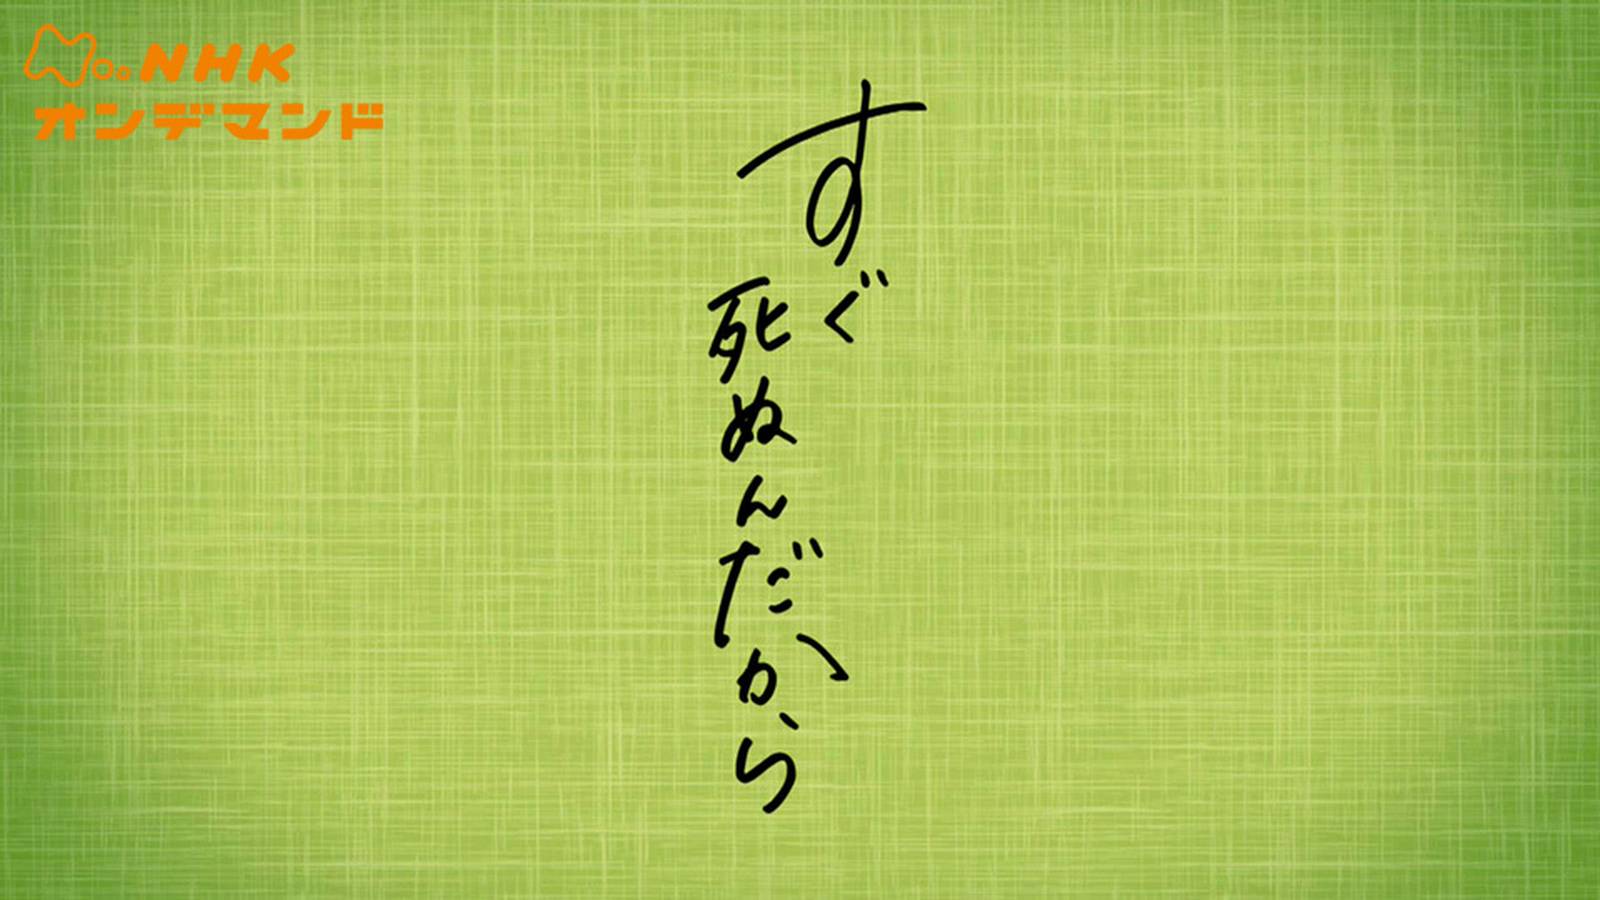 NHK
オンデマンド
すぐ
死ぬんだから